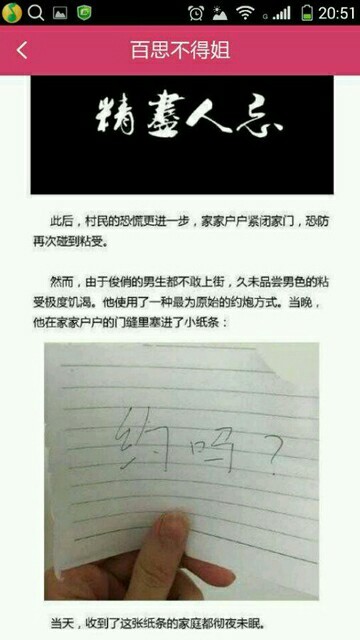 20:51
百思不得姐
精盡人忘
此后，村民的恐慌更进一步，家家户户紧闭家门，恐防
再次碰到粘受。
然而，由于俊俏的男生都不敢上街，久未品尝男色的粘
受极度饥渴。他使用了一种最为原始的约炮方式。当晚，
他在家家户户的门缝里塞进了小纸条：
约吗？
当天，收到了这张纸条的家庭都彻夜未眠。